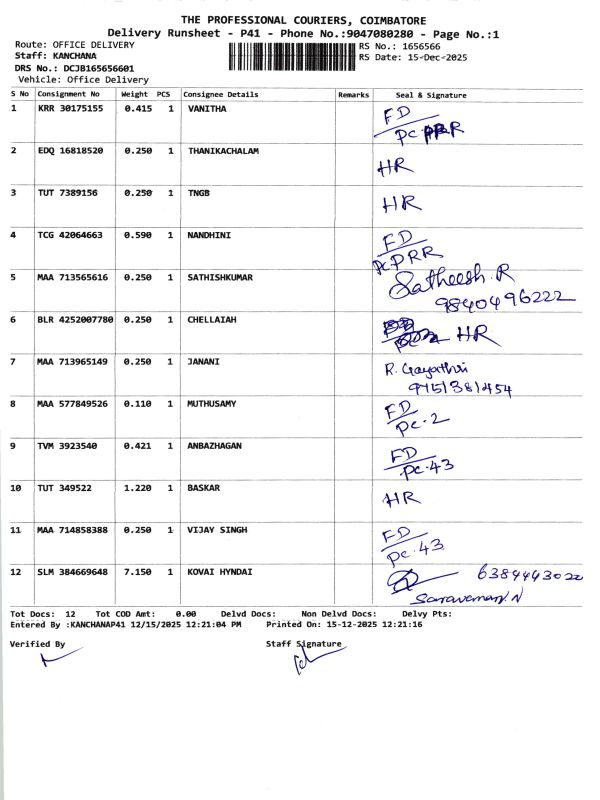 THE PROFESSIONAL COURIERS, COIMBATORE
Delivery Runsheet - P41 - Phone No.:9047080280 - Page No.:1
Route: OFFICE DELIVERY
RS No.: 1656566
Staff: KANCHANA
RS Date: 15-Dec-2025
DRS No.: DCJB165656601
Vehicle: Office Delivery
S No Consignment No Weight PCS Consignee Details Remarks Seal & Signature
1 KRR 30175155 0.415 1 VANITHA FD
PC RR
2 EDQ 16818520 0.250 1 THANIKACHALAM HR
3 TUT 7389156 0.250 1 TNGB HR
4 TCG 42064663 0.590 1 NANDHINI FD
PC PRR
5 MAA 713565616 0.250 1 SATHISHKUMAR Satheesh. R
9840496222
6 BLR 4252007780 0.250 1 CHELLAIAH HR
7 MAA 713965149 0.250 1 JANANI R. Gayathri
9751381454
8 MAA 577849526 0.110 1 MUTHUSAMY FD
PC-2
9 TVM 3923540 0.421 1 ANBAZHAGAN FD
PC-43
10 TUT 349522 1.220 1 BASKAR HR
11 MAA 714858388 0.250 1 VIJAY SINGH FD
PC-43
12 SLM 384669648 7.150 1 KOVAI HYNDAI 6384443022
Saravanan. N
Tot Docs: 12 Tot COD Amt: 0.00 Delvd Docs: Non Delvd Docs: Delvy Pts:
Entered By :KANCHANAP41 12/15/2025 12:21:04 PM Printed On: 15-12-2025 12:21:16
Verified By Staff Signature